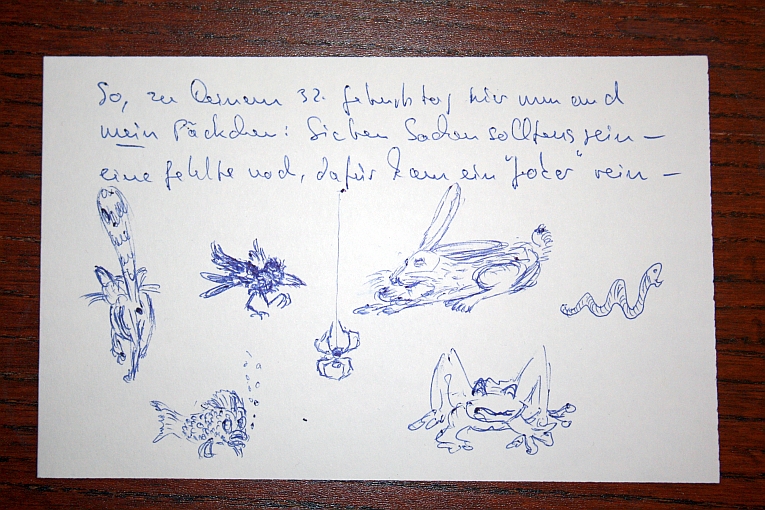 So, zu Deinem 32. Geburtstag hier nun auch
mein Päckchen: Sieben Sachen sollten's sein –
eine fehlte noch, dafür kam ein "Joker" rein –